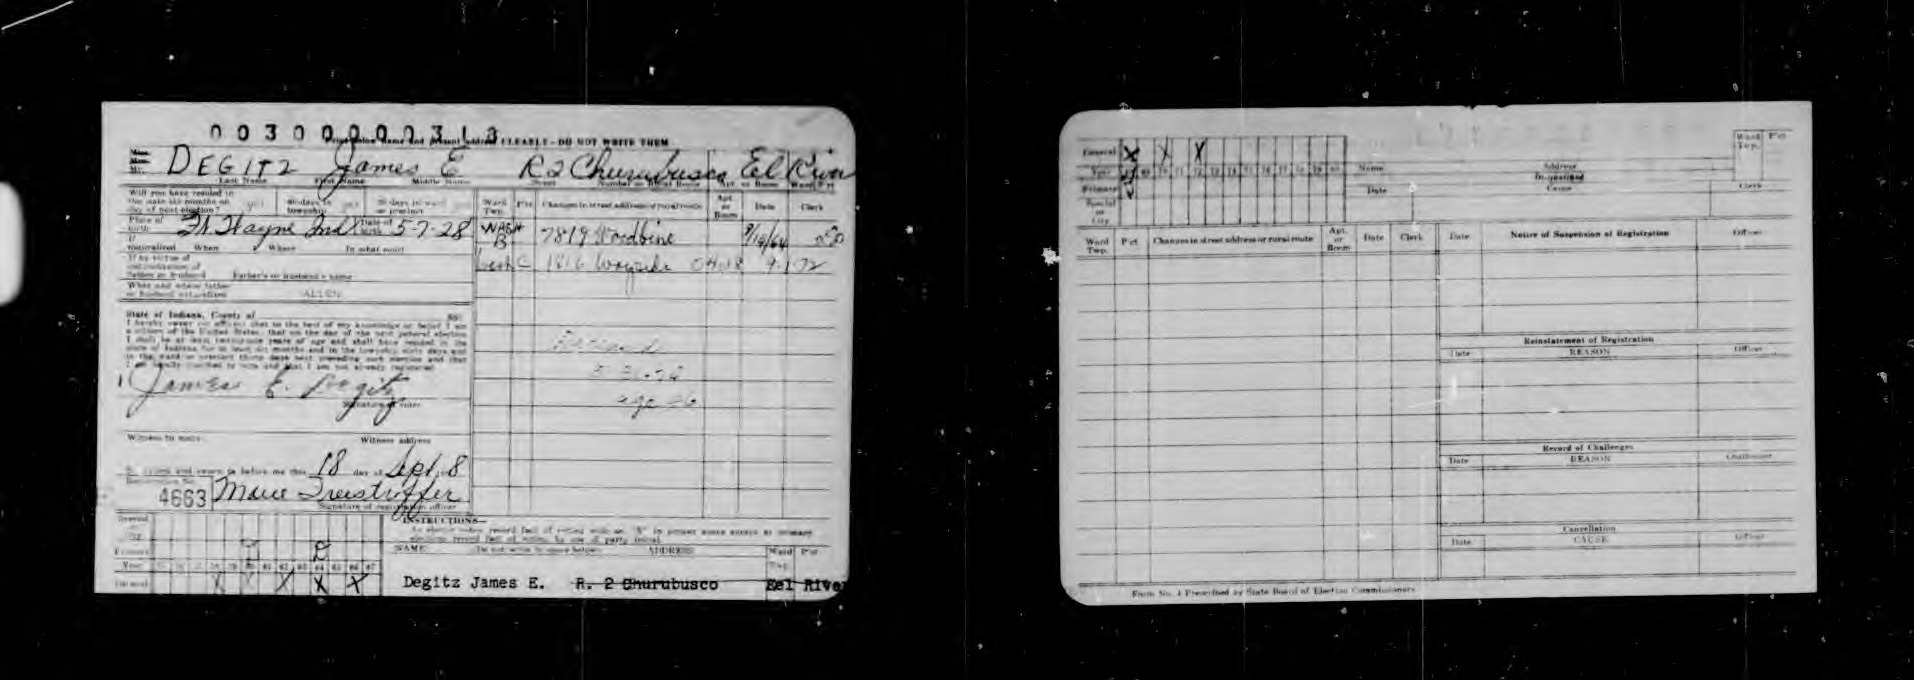 0030000031
Print below name and present address CLEARLY - DO NOT WRITE THEM
DEGITZ James E R 2 Churubusco Eel River
Last Name First Name Middle Name Street Number or Rural Route Apt. or Room Ward Pct
Will you have resided in
the state six months on
day of next election? yes 60 days in
township 30 days in ward
or precinct
Ward
Twp. Pct Changes in street address or rural route Apt.
or
Room Date Clerk
Place of
birth Ft Wayne Ind Date of
birth 5-7-28
WASH
B 7819 Woodbine 9/14/64
If
naturalized When Where In what court
Wash C 1816 Wayside 9-1-72
If by virtue of
naturalization of
father or husband Father's or husband's name
When and where father
or husband naturalized ALLEN
State of Indiana, County of SS:
I hereby swear (or affirm) that to the best of my knowledge or belief I am
a citizen of the United States, that on the day of the next general election
I shall be at least twenty-one years of age and shall have resided in the
state of Indiana for at least six months and in the township sixty days and
in the ward or precinct thirty days next preceding such election and that
I am legally entitled to vote and that I am not already registered
James E. Degitz
Signature of voter
Witness to mark Witness address
Subscribed and sworn to before me this 18 day of Sept
Registration No.
4663
Signature of registration officer
INSTRUCTIONS—
NAME (Do not write in space below) ADDRESS Ward
Twp. Pct
Primary
Year 58 59 60 61 62 63 64 65 66 67
General X X X X
Degitz James E. R. 2 Churubusco Eel River
General X X X
Year 68 69 70 71 72 73 74 75 76 77 78 79 80
Primary
Special
or
City
Name Address Ward
Twp. Pct
Disqualified
Date Cause Clerk
Ward
Twp. Pct Changes in street address or rural route Apt.
or
Room Date Clerk
Date Notice of Suspension of Registration Officer
Reinstatement of Registration
Date REASON Officer
Record of Challenges
Date REASON Challenger
Cancellation
Date CAUSE Officer
Form No. 4 Prescribed by State Board of Election Commissioners